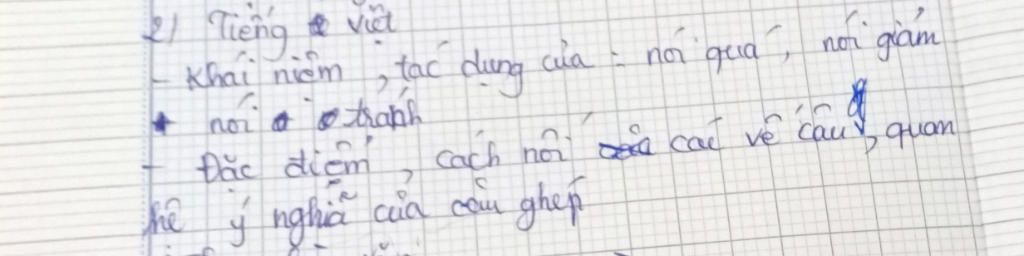 2) Tiếng Việt
- Khái niệm, tác dụng của : nói quá, nói giảm
nói tránh
- Đặc điểm, cách nối các vế câu, quan
hệ ý nghĩa của câu ghép